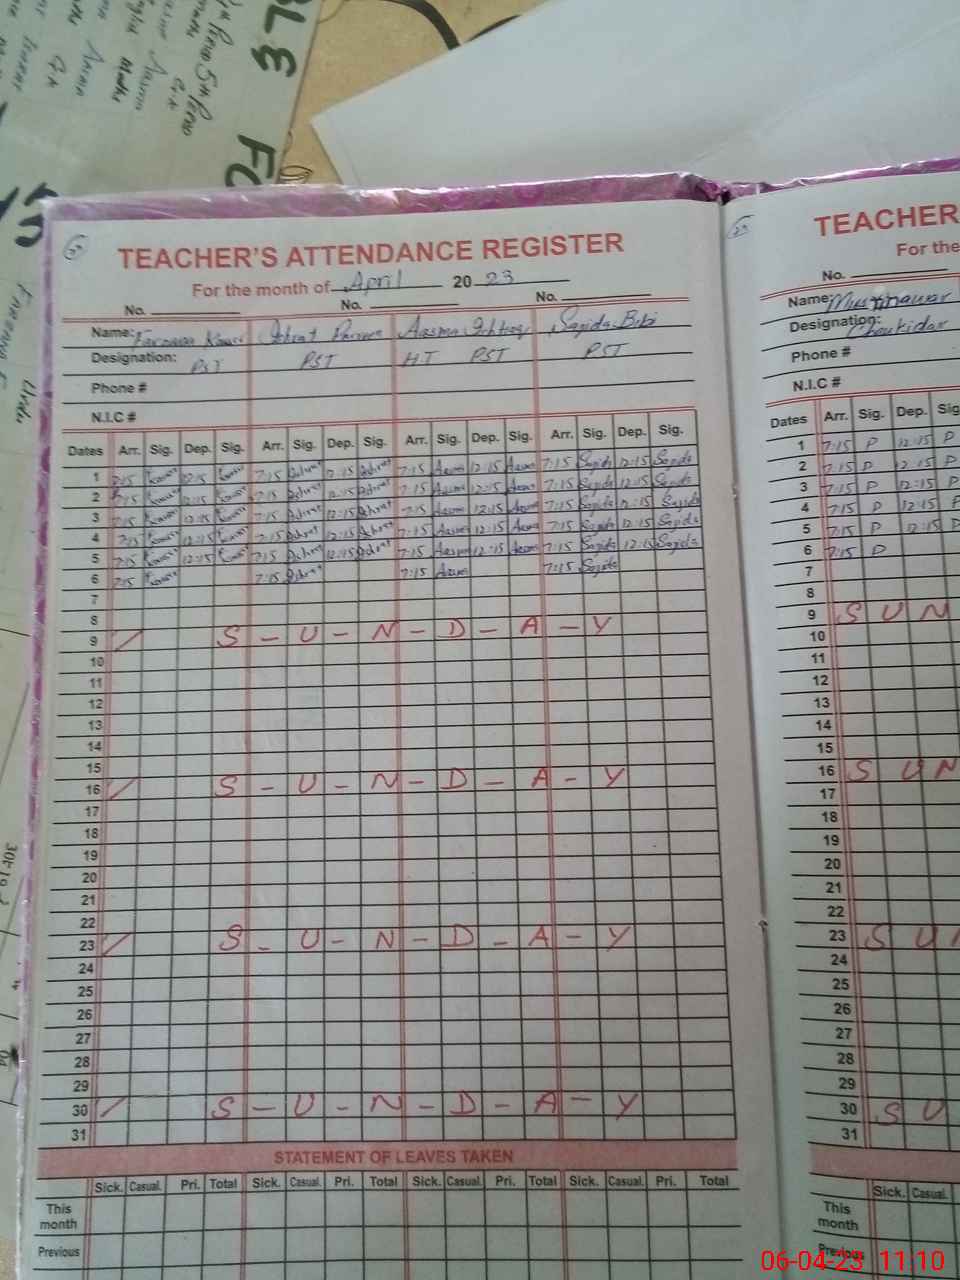 BLE
FO
5th Period
TEACHER'S ATTENDANCE REGISTER
For the month of April 2023
No. No. No.
Name: Farzana Kausar Ishrat Parveen Aasma Ishtiaq Sajida Bibi
Designation: PST PST HT PST PST
Phone #
N.I.C #
Dates Arr. Sig. Dep. Sig. Arr. Sig. Dep. Sig. Arr. Sig. Dep. Sig. Arr. Sig. Dep. Sig.
1 7:15 Kausar 12:15 Kausar 7:15 Ishrat 12:15 Ishrat 7:15 Aasma 12:15 Aasma 7:15 Sajida 12:15 Sajida
2 7:15 Kausar 12:15 Kausar 7:15 Ishrat 12:15 Ishrat 7:15 Aasma 12:15 Aasma 7:15 Sajida 12:15 Sajida
3 7:15 Kausar 12:15 Kausar 7:15 Ishrat 12:15 Ishrat 7:15 Aasma 12:15 Aasma 7:15 Sajida 12:15 Sajida
4 7:15 Kausar 12:15 Kausar 7:15 Ishrat 12:15 Ishrat 7:15 Aasma 12:15 Aasma 7:15 Sajida 12:15 Sajida
5 7:15 Kausar 12:15 Kausar 7:15 Ishrat 12:15 Ishrat 7:15 Aasma 12:15 Aasma 7:15 Sajida 12:15 Sajida
6 7:15 Kausar 7:15 Ishrat 7:15 Aasma 7:15 Sajida
7
8
9 S - U - N - D - A - Y
10
11
12
13
14
15
16 S - U - N - D - A - Y
17
18
19
20
21
22
23 S - U - N - D - A - Y
24
25
26
27
28
29
30 S - U - N - D - A - Y
31
STATEMENT OF LEAVES TAKEN
Sick. Casual. Pri. Total Sick. Casual. Pri. Total Sick. Casual. Pri. Total Sick. Casual. Pri. Total
This month
Previous
TEACHER
For the
No.
Name:
Designation: Choukidar
Phone #
N.I.C #
Dates Arr. Sig. Dep. Sig
1 7:15 P 12:15 P
2 7:15 P 12:15 P
3 7:15 P 12:15 P
4 7:15 P 12:15 P
5 7:15 P 12:15 P
6 7:15 P
7
8
9 S U N
10
11
12
13
14
15
16 S U N
17
18
19
20
21
22
23 S U
24
25
26
27
28
29
30 S U
31
Sick. Casual
This month
Previous
06-04-23 11:10